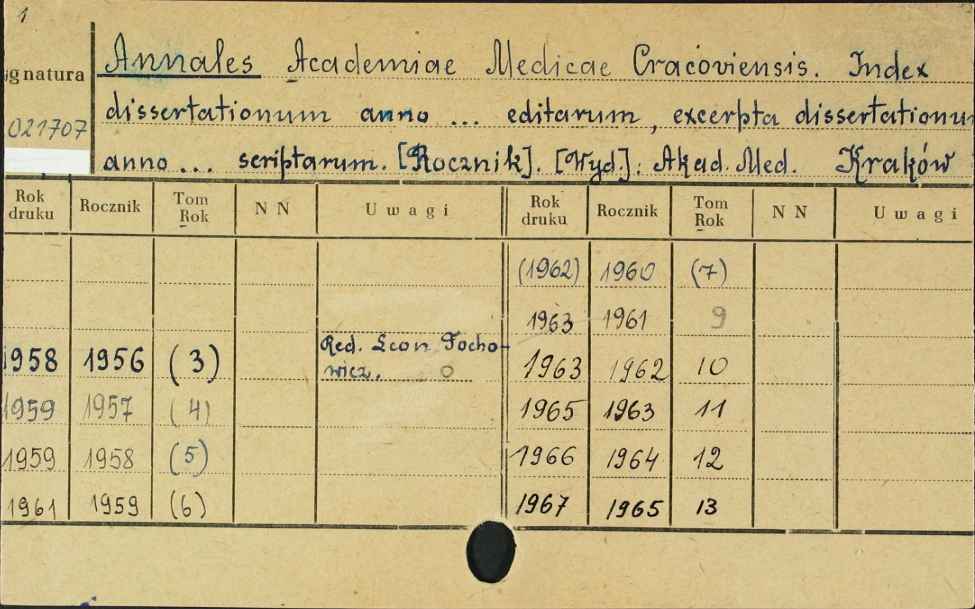 1
ignatura
Annales Academiae Medicae Cracoviensis. Index
021707
dissertationum anno ... editarum, excerpta dissertationum
anno ... scriptarum. [Rocznik]. [Wyd]: Akad. Med. Kraków
Rok druku Rocznik Tom Rok NN Uwagi Rok druku Rocznik Tom Rok NN Uwagi
(1962) 1960 (7)
1963 1961 9
1958 1956 (3) Red. Leon Tocho-
wicz. O 1963 1962 10
1959 1957 (4) 1965 1963 11
1959 1958 (5) 1966 1964 12
1961 1959 (6) 1967 1965 13